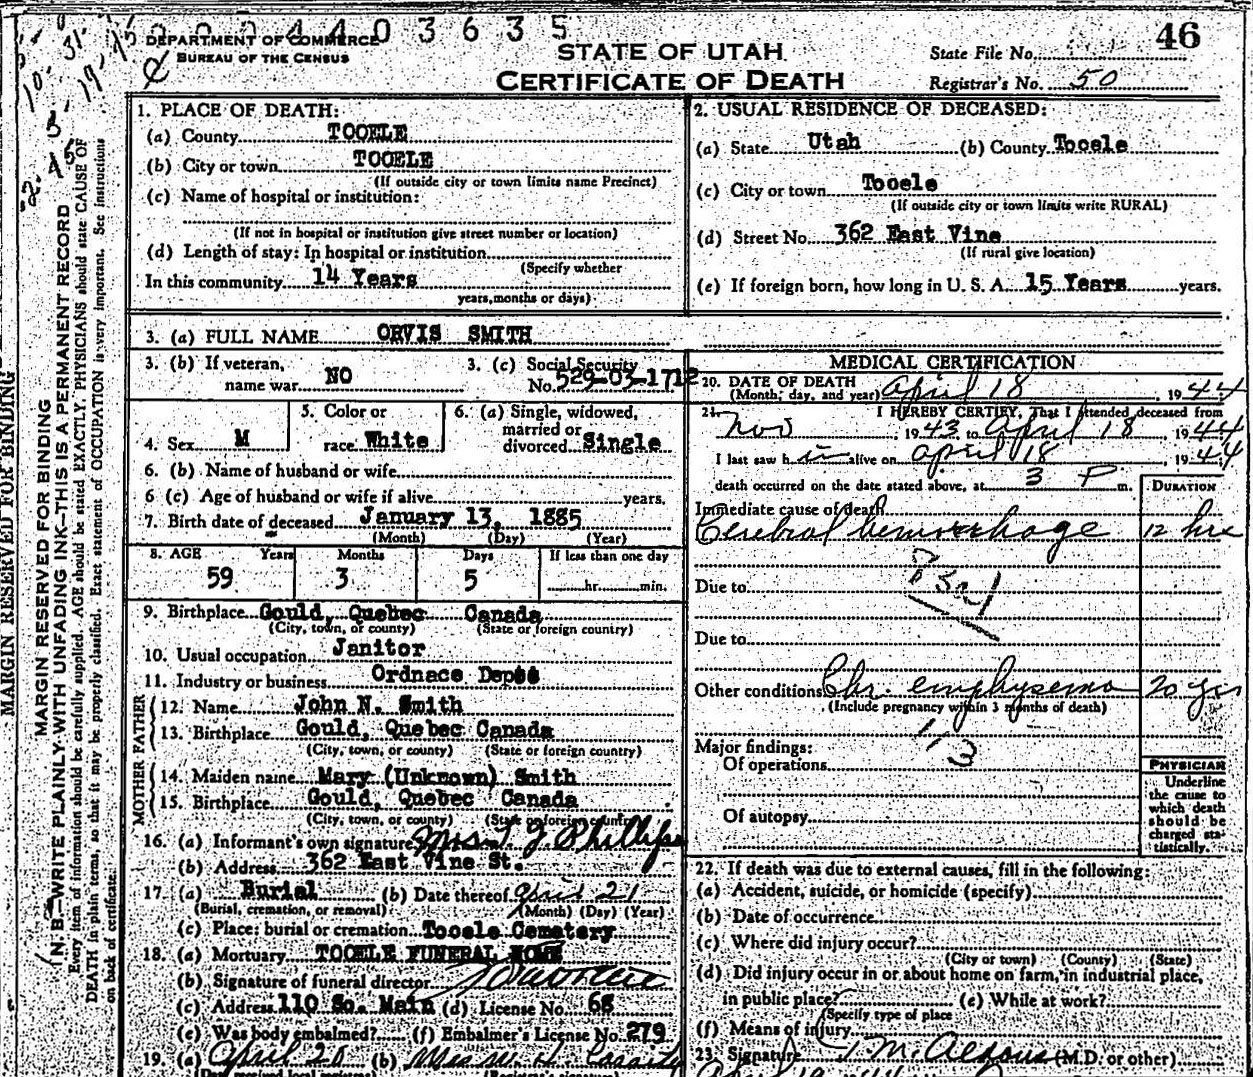 0 3 6 3 5
DEPARTMENT OF COMMERCE
BUREAU OF THE CENSUS
STATE OF UTAH
CERTIFICATE OF DEATH
46
State File No.
Registrar's No. 50
MARGIN RESERVED FOR BINDING
MARGIN RESERVED FOR BINDING
N. B.—WRITE PLAINLY WITH UNFADING INK—THIS IS A PERMANENT RECORD
Every item of information should be carefully supplied. AGE should be stated EXACTLY. PHYSICIANS should state CAUSE OF
DEATH in plain terms, so that it may be properly classified. Exact statement of OCCUPATION is very important. See instructions
on back of certificate.
1. PLACE OF DEATH:
(a) County TOOELE
(b) City or town TOOELE
(If outside city or town limits name Precinct)
(c) Name of hospital or institution:
(If not in hospital or institution give street number or location)
(d) Length of stay: In hospital or institution
(Specify whether
In this community 14 Years
years, months or days)
2. USUAL RESIDENCE OF DECEASED:
(a) State Utah (b) County Tooele
(c) City or town Tooele
(If outside city or town limits write RURAL)
(d) Street No. 362 East Vine
(If rural give location)
(e) If foreign born, how long in U. S. A. 15 Years years.
3. (a) FULL NAME ORVIS SMITH
3. (b) If veteran, name war NO
3. (c) Social Security No. 529-03-1712
4. Sex M
5. Color or race White
6. (a) Single, widowed, married or divorced Single
6. (b) Name of husband or wife
6 (c) Age of husband or wife if alive years.
7. Birth date of deceased January 13, 1885
(Month) (Day) (Year)
8. AGE Years Months Days If less than one day
59 3 5 hr. min.
9. Birthplace Gould, Quebec Canada
(City, town, or county) (State or foreign country)
10. Usual occupation Janitor
11. Industry or business Ordnace Depot
FATHER
12. Name John N. Smith
13. Birthplace Gould, Quebec Canada
(City, town, or county) (State or foreign country)
MOTHER
14. Maiden name Mary (Unknown) Smith
15. Birthplace Gould, Quebec Canada
(City, town, or county) (State or foreign country)
16. (a) Informant's own signature Mrs T J Phillips
(b) Address 362 East Vine St.
17 (a) Burial (b) Date thereof April 21
(Burial, cremation, or removal) (Month) (Day) (Year)
(c) Place: burial or cremation Tooele Cemetery
18. (a) Mortuary TOOELE FUNERAL HOME
(b) Signature of funeral director
(c) Address 110 So. Main (d) License No. 68
(e) Was body embalmed? (f) Embalmer's License No. 279
19. (a) April 20 (b) Mrs W.
MEDICAL CERTIFICATION
20. DATE OF DEATH
(Month, day, and year) April 18, 1944
21. I HEREBY CERTIFY, That I attended deceased from
Nov, 1943 to April 18, 1944
I last saw him alive on April 18, 1944
death occurred on the date stated above, at 3 P m.
DURATION
Immediate cause of death
Cerebral hemorrhage 12 hrs
Due to
Due to
Other conditions Chr. emphysema 20 yrs
(Include pregnancy within 3 months of death)
113
Major findings:
Of operations
Of autopsy
PHYSICIAN
Underline
the cause to
which death
should be
charged sta-
tistically.
22. If death was due to external causes, fill in the following:
(a) Accident, suicide, or homicide (specify)
(b) Date of occurrence
(c) Where did injury occur?
(City or town) (County) (State)
(d) Did injury occur in or about home on farm, in industrial place,
in public place? (e) While at work?
(Specify type of place
(f) Means of injury
23. Signature M. Aldous (M.D. or other)